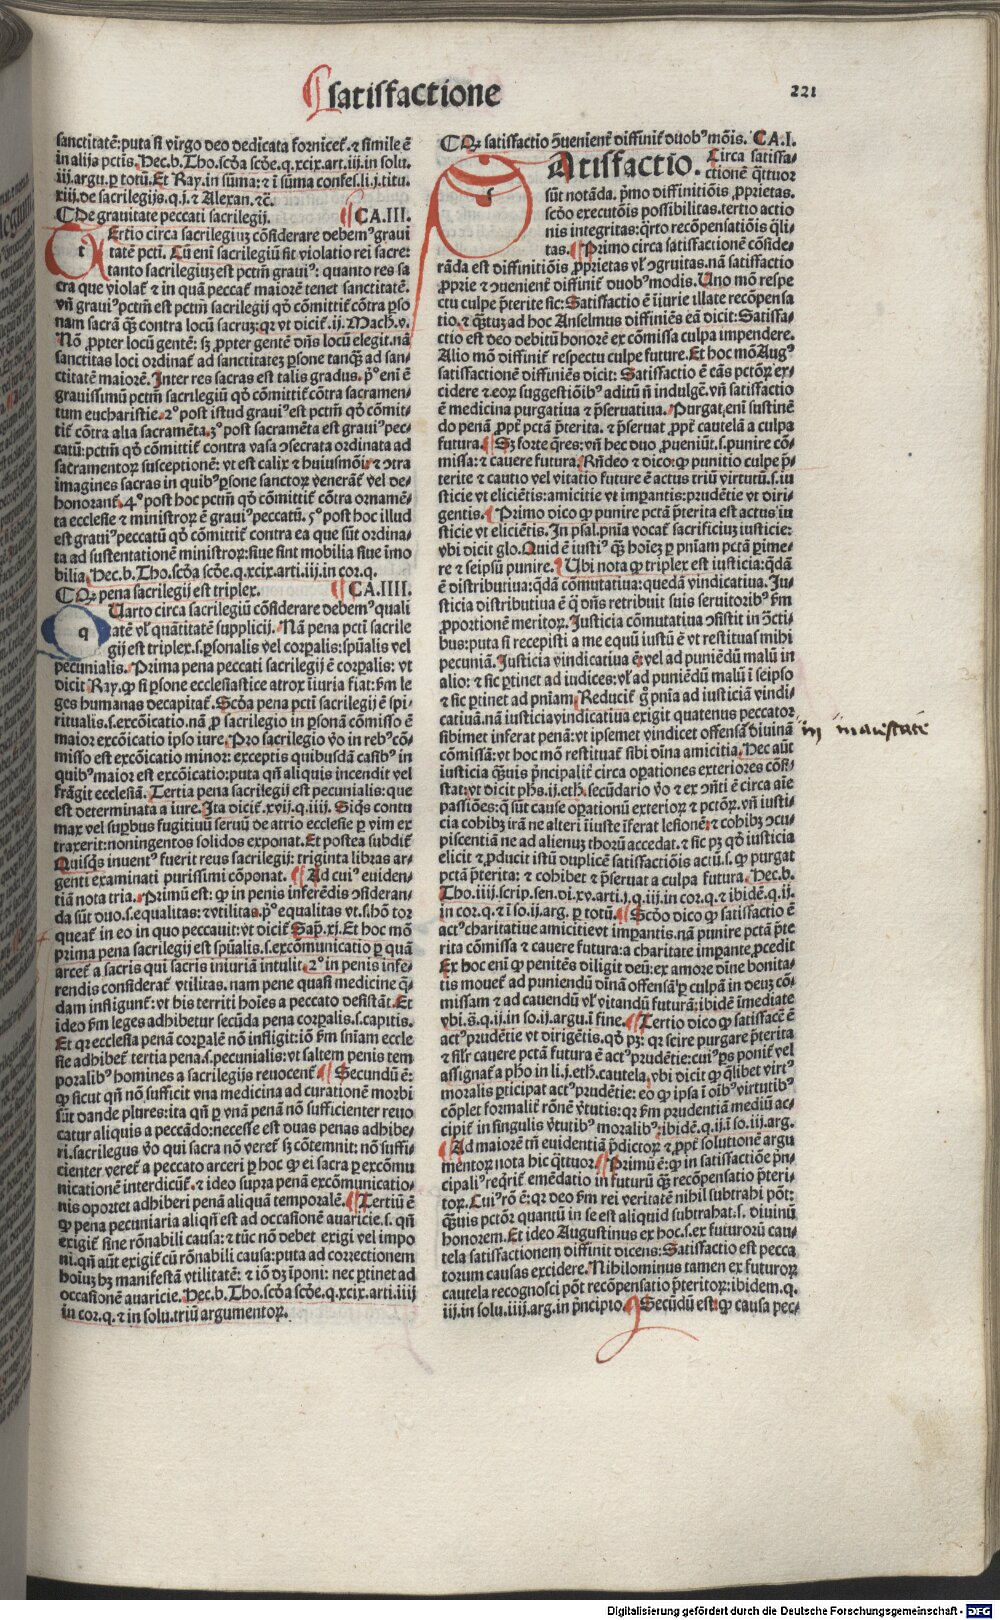 satisfactione
221
sanctitatē: puta si virgo deo dedicata fornicet᷑. ⁊ simile ē
in alijs pctīs. Hec.b. Tho. scḋa scḋe.q.xcix.art.iii.in solu.
iii.argu.ꝑ totū. Et Ray.in sūma: ⁊ ī sūma confes.li.j.titu.
xiii.de sacrilegijs.q.j.⁊ Alexan.⁊c̄.
De grauitate peccati sacrilegij. CA.III.
Ertio circa sacrilegiuȝ cōsiderare debemꝰ graui
tatē pcti. Cū eni sacrilegiū sit violatio rei sacre:
tanto sacrilegiuȝ est pctm̄ grauiꝰ: quanto res sa
cra que violat᷑ ⁊ in quā peccat᷑ maiorē tenet sanctitatē.
vn̄ grauiꝰ pctm̄ est pctm̄ sacrilegij qḋ cōmittit᷑ cōtra ꝑso
nam sacrā q̄ȝ contra locū sacruȝ: qꝛ vt dicit᷑.ij. Mach.v.
Nō ꝓpter locū gentē: sȝ ꝓpter gentē dn̄s locū elegit.nā
sanctitas loci ordinat᷑ ad sanctitateȝ ꝑsone tanq̄ȝ ad san-
ctitatē maiorē. Inter res sacras est talis gradus. pº eni ē
grauissimū pctm̄ sacrilegiū qḋ cōmittit᷑ cōtra sacramen-
tum eucharistie. 2º post istud grauiꝰ est pctm̄ qḋ cōmit-
tit᷑ cōtra alia sacramēta. 3º post sacramēta est grauiꝰ pec-
catū: pctm̄ qḋ cōmittit᷑ contra vasa ꝯsecrata ordinata ad
sacramentoꝝ susceptionē: vt est calix ⁊ huiusmōi: ⁊ ꝯtra
imagines sacras in quibꝰ ꝑsone sanctoꝝ venerāt᷑ vel de-
honorant᷑. 4º post hoc pctm̄ qḋ cōmittit᷑ cōtra ornamē-
ta ecclesie ⁊ ministroꝝ ē grauiꝰ peccatū. 5º post hoc illud
est grauiꝰ peccatū qḋ cōmittit᷑ contra ea que sūt ordina-
ta ad sustentationē ministroꝝ: siue sint mobilia siue īmo
bilia. Hec.b. Tho. scḋa scḋe.q.xcix.arti.iij.in cor.q.
Qꝙ pena sacrilegij est triplex. CA.IIII.
Uarto circa sacrilegiū cōsiderare debemꝰ quali
tatē vl̓ quātitatē supplicij. Nā pena pcti sacrile
gij est triplex.s.ꝑsonalis vel corꝑalis: spūalis vel
pecunialis. Prima pena peccati sacrilegij ē corꝑalis: vt
dicit Ray.ꝙ si ꝑsone ecclesiastice atrox īiuria fiat: ẜm le
ges humanas decapitat᷑. Scḋa pena pcti sacrilegij ē spi-
ritualis.s.excōicatio.nā ꝓ sacrilegio in ꝑsonā cōmisso ē
maior excōicatio ipso iure. Pro sacrilegio v̊o in rebꝰ cō-
misso est excōicatio minor: exceptis quibusdā casibꝰ in
quibꝰ maior est excōicatio: puta qn̄ aliquis incendit vel
frāgit ecclesiā. Tertia pena sacrilegij est pecunialis: que
est determinata a iure. Ita dicit᷑.xvij.q.iiij. Siq̄s contu
max vel suꝑbus fugitiuū seruū de atrio ecclesie ꝑ vim ex
traxerit: noningentos solidos exponat. Et postea subdit᷑
Quisq̄s inuentꝰ fuerit reus sacrilegij: triginta libras ar-
genti examinati purissimi cōponat. Ad cuiꝰ euiden-
tiā nota tria. Primū est: ꝙ in penis inferēdis ꝯsideran-
da sūt duo.s.equalitas: ⁊ vtilitas.pº equalitas vt.s.hō tor
queat᷑ in eo in quo peccauit: vt dicit᷑ Sap̄.xj. Et hoc mō
prima pena sacrilegij est spūalis.s.excōmunicatio ꝑ quā
arcet᷑ a sacris qui sacris iniuriā intulit. 2º in penis infe-
rendis considerat᷑ vtilitas.nam pene quasi medicine q̄-
dam infligunt᷑: vt his territi hoīes a peccato desistāt. Et
ideo ẜm leges adhibetur secūda pena corꝑalis.s.capitis.
Et qꝛ ecclesia penā corꝑalē nō infligit: iō ẜm sniam eccle
sie adhibet᷑ tertia pena.s.pecunialis: vt saltem penis tem
poralibꝰ homines a sacrilegijs reuocent᷑. Secundū ē:
ꝙ sicut qn̄ nō sufficit vna medicina ad curationē morbi
sūt dande plures: ita qn̄ ꝑ vnā penā nō sufficienter reuo
catur aliquis a peccādo: necesse est duas penas adhibe-
ri.sacrilegus v̊o qui sacra nō veret᷑ sȝ cōtemnit: nō suffi-
cienter veret᷑ a peccato arceri ꝑ hoc ꝙ ei sacra ꝑ excōmu
nicationē interdicūt᷑. ⁊ ideo supra penā excōmunicatio-
nis oportet adhiberi penā aliquā temporalē. Tertiū ē
ꝙ pena pecuniaria aliqn̄ est ad occasionē auaricie.s.qn̄
exigit᷑ sine rōnabili causa: ⁊ tūc nō debet exigi vel impo
ni.qn̄ aūt exigit᷑ cū rōnabili causa: puta ad correctionem
hoiuȝ hȝ manifestā vtilitatē: ⁊ iō dȝ īponi: nec ꝑtinet ad
occasionē auaricie. Hec.b. Tho. scḋa scḋe.q.xcix.arti.iiij
in cor.q.⁊ in solu.triū argumentoꝝ.
Qꝙ satisfactio ꝯuenient᷑ diffinit᷑ duobꝰ mōis. CA.I.
Atisfactio. Circa satisfa-
ctionē q̄ttuor
sūt notāda. pͥmo diffinitiōis ꝓprietas.
scḋo executōis possibilitas. tertio actio
nis integritas: q̊rto recōpensatiōis q̄li-
tas. Primo circa satisfactionē cōside-
rāda est diffinitiōis ꝓprietas vl̓ ꝯgruitas.nā satisfactio
ꝓprie ⁊ ꝯuenient᷑ diffinit᷑ duobꝰ modis. Uno mō respe
ctu culpe p̄terite sic: Satisfactio ē iiurie illate recōpensa
tio.⁊ q̄ȝtuȝ ad hoc Anselmus diffiniēs eā dicit: Satisfa-
ctio est deo debitū honorē ex cōmissa culpa impendere.
Alio mō diffinit᷑ respectu culpe future. Et hoc mō Augꝰ
satisfactionē diffiniēs dicit: Satisfactio ē cās pctōꝝ ex-
cidere ⁊ eoꝝ suggestiōibꝰ aditū n̄ indulgē.vn̄ satisfactio
ē medicina purgatiua ⁊ p̄seruatiua. Purgat eni sustinē
do penā ꝓpt᷑ pctā p̄terita. ⁊ p̄seruat ꝓpt᷑ cautelā a culpa
futura. Sȝ forte q̄res: vn̄ hec duo ꝓueniūt.s.punire cō-
missa: ⁊ cauere futura. Rn̄deo ⁊ dico: ꝙ punitio culpe p̄-
terite ⁊ cautio vel vitatio future ē actus triū virtutū.s.iu
sticie vt eliciētis: amicitie vt imꝑantis: prudētie vt diri-
gentis. Primo dico ꝙ punire pctā p̄terita est actus iu
sticie vt eliciētis. In psal.pn̄ia vocat᷑ sacrificiuȝ iusticie:
vbi dicit glo. Quid ē iustiꝰ q̄ȝ hoīeȝ ꝑ pn̄iam pctā ꝑime-
re ⁊ seipsū punire. Ubi nota ꝙ triplex est iusticia: q̄dā
ē distributiua: q̄dā cōmutatiua: quedā vindicatiua. Iu-
sticia distributiua ē q̄ dn̄s retribuit suis seruitoribꝰ ẜm
ꝓportionē meritoꝝ. Iusticia cōmutatiua ꝯsistit in ꝯcti-
bus: puta si recepisti a me equū iustū ē vt restituas mihi
pecuniā. Iusticia vindicatiua ē: vel ad puniēdū malū in
alio: ⁊ sic ꝑtinet ad iudices: vl̓ ad puniēdū malū ī seipso
⁊ sic ꝑtinet ad pn̄iam. Reducit᷑ g̊ pn̄ia ad iusticiā vindi-
catiuā.nā iusticia vindicatiua exigit quatenus peccator
sibimet inferat penā: vt ipsemet vindicet offensā diuinā
cōmissā: vt hoc mō restituat᷑ sibi dīna amicitia. Hec aūt
iusticia q̄ȝuis p̄ncipalit᷑ circa oꝑationes exteriores cōsi-
stat: vt dicit phs.ij.eth. secūdario v̊o ⁊ ex ꝯn̄ti ē circa aīe
passiōes: q̄ sūt cause oꝑationū exterioꝝ ⁊ pctōꝝ.vn̄ iusti-
cia cohibȝ irā ne alteri īiuste īferat lesionē: ⁊ cohibȝ ꝯcu-
piscentiā ne ad alienuȝ thorū accedat. ⁊ sic pȝ qḋ iusticia
elicit ⁊ ꝓducit istū duplicē satisfactiōis actū.s.ꝙ purgat
pctā p̄terita: ⁊ cohibet ⁊ p̄seruat a culpa futura. Hec.b.
Tho.iiij.scrip.sen.di.xv.arti.j.q.iij.in cor.q.⁊ ibidē.q.ij.
in cor.q.⁊ ī so.ij.arg. ꝑ totū. Scḋo dico ꝙ satisfactio ē
actꝰ charitatiue amicitie vt imꝑantis.nā punire pctā p̄te
rita cōmissa ⁊ cauere futura: a charitate imꝑante ꝓcedit
Ex hoc eni ꝙ penitēs diligit deū: ex amore dīne bonita-
tis mouet᷑ ad puniendū dīnā offensā ꝑ culpā in deuȝ cō-
missam ⁊ ad cauendū vl̓ vitandū futurā: ibidē īmediate
vbi.s̄.q.ij.in so.ij.argu.ī fine. Tertio dico ꝙ satisfacē ē
actꝰ prudētie vt dirigētis.qḋ pȝ: qꝛ scire purgare p̄terita
⁊ sil̓r cauere pctā futura ē actꝰ prudētie: cuiꝰ ꝑs ponit᷑ vel
assignat᷑ a pho in li.j.eth.cautela. vbi dicit ꝙ q̄libet virtꝰ
moralis ꝑticipat actꝰ prudētie: eo ꝙ ipsa ī oībꝰ virtutibꝰ
cōplet formalit᷑ rōnē v̓tutis: qꝛ ẜm prudentiā mediū ac-
cipit᷑ in singulis v̓tutibꝰ moralibꝰ: ibidē.q.ij.ī so.iij.arg.
Ad maiorē tn̄ euidentiā p̄dictoꝝ ⁊ ꝓpt᷑ solutionē argu
mentoꝝ nota hic q̄ttuor. Primū ē: ꝙ in satisfactiōe p̄n-
cipaliꝰ req̄rit᷑ emēdatio in futurū q̄ȝ recōpensatio p̄teri-
toꝝ. Cuiꝰ rō ē: qꝛ deo ẜm rei veritatē nihil subtrahi pōt:
q̄ȝuis pctōꝝ quantū in se est aliquid subtrahat.s. diuinū
honorem. Et ideo Augustinus ex hoc.s.ex futuroꝝ cau-
tela satisfactionem diffinit dicens: Satisfactio est pecca
torum causas excidere. Nihilominus tamen ex futuroꝝ
cautela recognosci pōt recōpensatio p̄teritoꝝ: ibidem.q.
iij.in solu.iiij.arg.in p̄ncipio. Secūdū est: ꝙ causa pec-
in maiestate
Digitalisierung gefördert durch die Deutsche Forschungsgemeinschaft - DFG